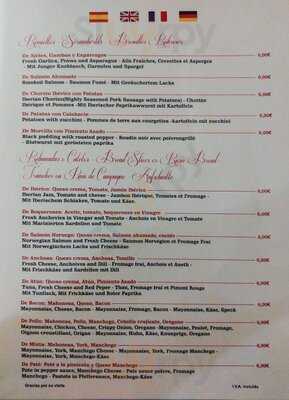 De Ajetes, Gambas y Espárragos 6,00€
Fresh Garlics, Prawn and Asparagus - Ails Fraiches, Crevettes et Asperges
- Mit Junger Knoblauch, Garnelen und Spargel
De Salmón Ahumado 6,00€
Smoked Salmon - Saumon Fumé - Mit Geräuchertem Lachs
De Chorizo Ibérico con Patatas 6,00€
Iberian Chorizo(Highly Seasoned Pork Sausage with Potatoes) - Chorizo
Ibérique et Pommes -Mit Iberischer Paprikawurst mit Kartoffeln
De Patatas con Calabacín 6,00€
Potatoes with zucchini - Pommes de terre aux courgettes -Kartoffeln mit zucchini
De Morcilla con Pimiento Asado 6,00€
Black pudding with roasted pepper - Boudin noir avec poivrongrillé
- Blutwurst mit gerösteten paprika
De Ibérico: Queso crema, Tomate, Jamón Ibérico 6,00€
Iberian Jam, Tomato and cheese - Jambon Ibérique, Tomates et Fromage -
Mit Iberischem Schinken, Tomate und Käse.
De Boquerones: Aceite, tomate, Boquerones en Vinagre 6,00€
Fresh Anchovies in Vinegar and Tomato - Anchois au Vinaigre et Tomate
Mit Marinierten Sardellen und Tomate
De Salmón Noruego: Queso crema, Salmón ahumado, eneldo 6,00€
Norwegian Salmon and Fresh Cheese - Saumon Norvégien et Fromage Frai
Mit Norwegischem Lachs und Frischkäse
De Anchoas: Queso crema, Anchoas, Tomillo 6,00€
Fresh Cheese, Anchoives and Dill - Fromage frai, Anchois et Aneth -
Mit Frischkäse und Sardellen mit Dill
De Atún: Queso crema, Atún, Pimiento Asado 6,00€
Tuna, Fresh Cheese and Red Pepper - Thon, Fromage Frai et Piment Rouge
Mit Tunfisch, Mit Frischkäse und Roter Paprika
De Bacon: Mahonesa, Queso, Bacon 6,00€
Mayonnaise, Cheese, Bacon - Mayonnaise, Fromage, Bacon - Mayonnaise, Käse, Speck
De Pollo: Mahonesa, Pollo, Manchego, Cebolla crujiente, Orégano 6,00€
Mayonnaise, Chicken, Cheese, Crispy Onion, Oregano -Mayonnaise, Poulet, Fromage,
Oignon croustillant, Origan - Mayonnaise, Huhn, Käse, Knusprige, Oregano
De Mixto: Mahonesa, York, Manchego 6,00€
Mayonnaise, York, Manchego Cheese - Mayonnaise, York, Fromage Manchego -
Mayonnaise, York, Manchego-Käse
De Paté: Paté a la pimienta y Queso Manchego 6,00€
Pate in pepper sauce, Manchego Cheese - Pate in pepper sauce, Fromage
Manchego - Pastete in Pfeffersauce, Manchego-Käse
Gracias por su visita I.V.A. Incluido